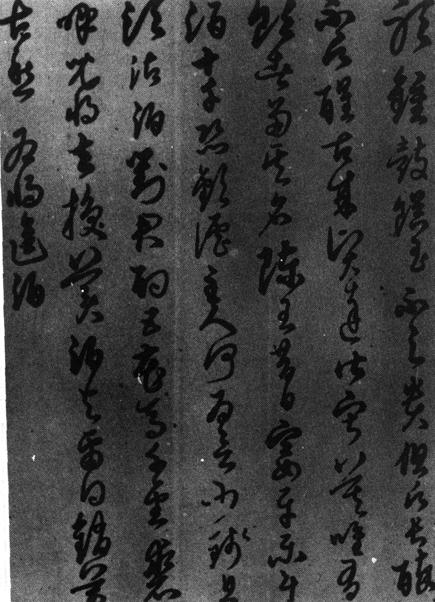 聽鐘鼓饌玉不足貴但願長醉
不願醒古來賢達皆寂寞唯有
飲者留其名陳王昔日宴平樂斗
酒十千恣歡謔主人何為言少錢且
須沽酒對君酌五花馬千金裘
呼兒將出換美酒與爾同銷萬
古愁 右將進酒